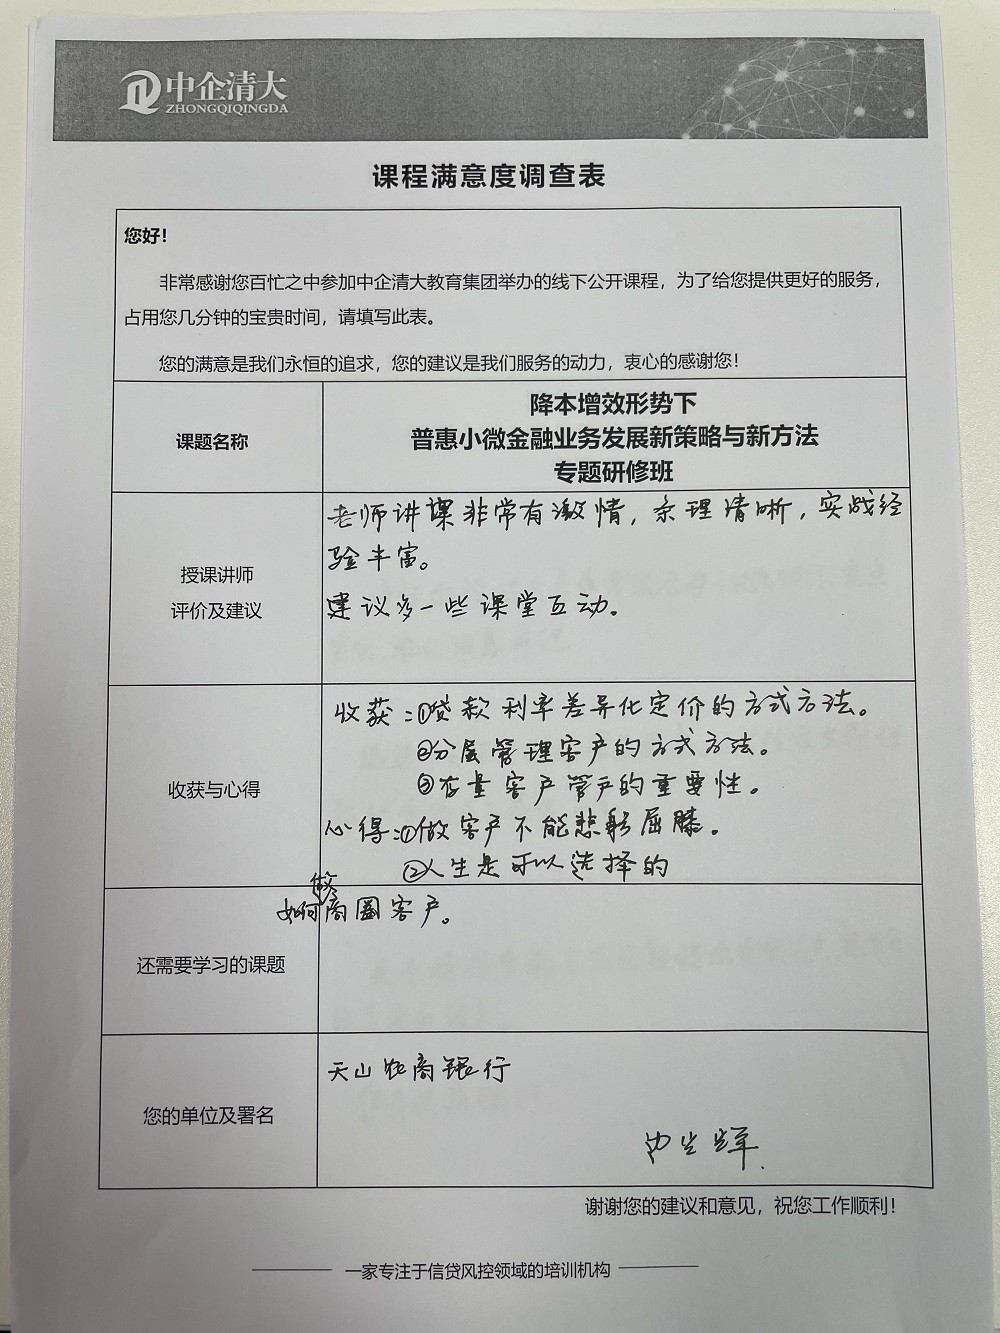 中企清大
ZHONGQIQINGDA
课程满意度调查表
您好！
非常感谢您百忙之中参加中企清大教育集团举办的线下公开课程，为了给您提供更好的服务，
占用您几分钟的宝贵时间，请填写此表。
您的满意是我们永恒的追求，您的建议是我们服务的动力，衷心的感谢您！
课题名称
降本增效形势下
普惠小微金融业务发展新策略与新方法
专题研修班
授课讲师
评价及建议
老师讲课非常有激情，条理清晰，实战经
验丰富。
建议多一些课堂互动。
收获与心得
收获：①贷款利率差异化定价的方式方法。
②分层管理客户的方式方法。
③存量客户管户的重要性。
心得：①做客户不能悲躬屈膝。
②人生是可以选择的
还需要学习的课题
如何做商圈客户。
您的单位及署名
天山农商银行
谢谢您的建议和意见，祝您工作顺利！
一家专注于信贷风控领域的培训机构